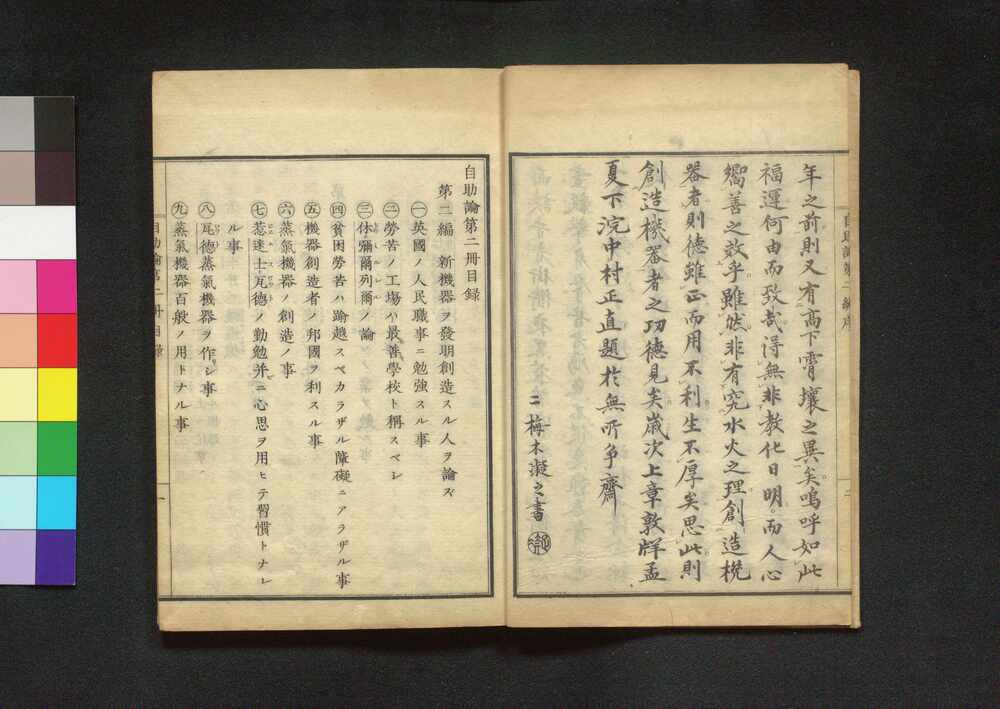 年之前則又有高下霄壤之異矣嗚呼如此
福運何由而致哉得無非教化日明而人心
嚮善之效乎雖然非有究水火之理創造機
器者則德雖正而用不利生不厚矣思此則
創造機器者之功德見矣歲次上章敦牂孟
夏下浣中村正直題於無所爭齋
二梅木凝之書
自助論第二冊目録
第二編 新機器ヲ發明創造スル人ヲ論ズ
㊀英國ノ人民職事ニ勉強スル事
㊁勞苦ノ工塲ハ最善學校ト稱スベシ
㊂休彌爾列爾ノ論
㊃貧困勞苦ハ踰越スベカラザル障礙ニアラザル事
㊄機器創造者ノ邦國ヲ利スル事
㊅蒸氣機器ノ創造ノ事
㊆惹迷士瓦德ノ勤勉并ニ心思ヲ用ヒテ習慣トナレ
ル事
㊇瓦德蒸氣機器ヲ作シ事
㊈蒸氣機器百般ノ用トナル事